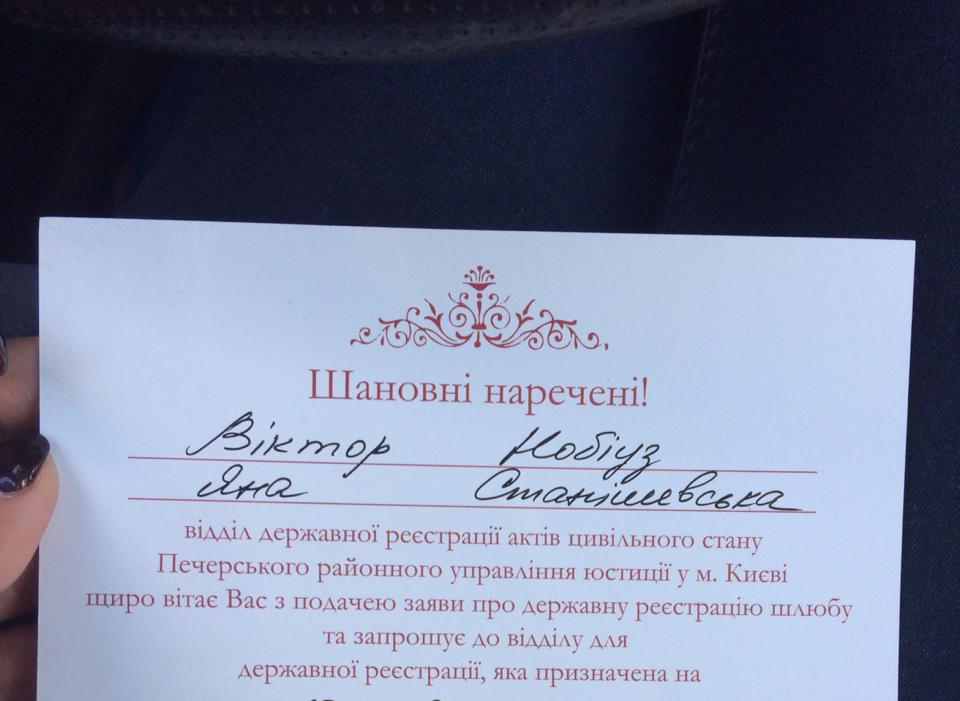 Шановні наречені!
Віктор Нобіуз
Яна Станішевська
відділ державної реєстрації актів цивільного стану
Печерського районного управління юстиції у м. Києві
щиро вітає Вас з подачею заяви про державну реєстрацію шлюбу
та запрошує до відділу для
державної реєстрації, яка призначена на